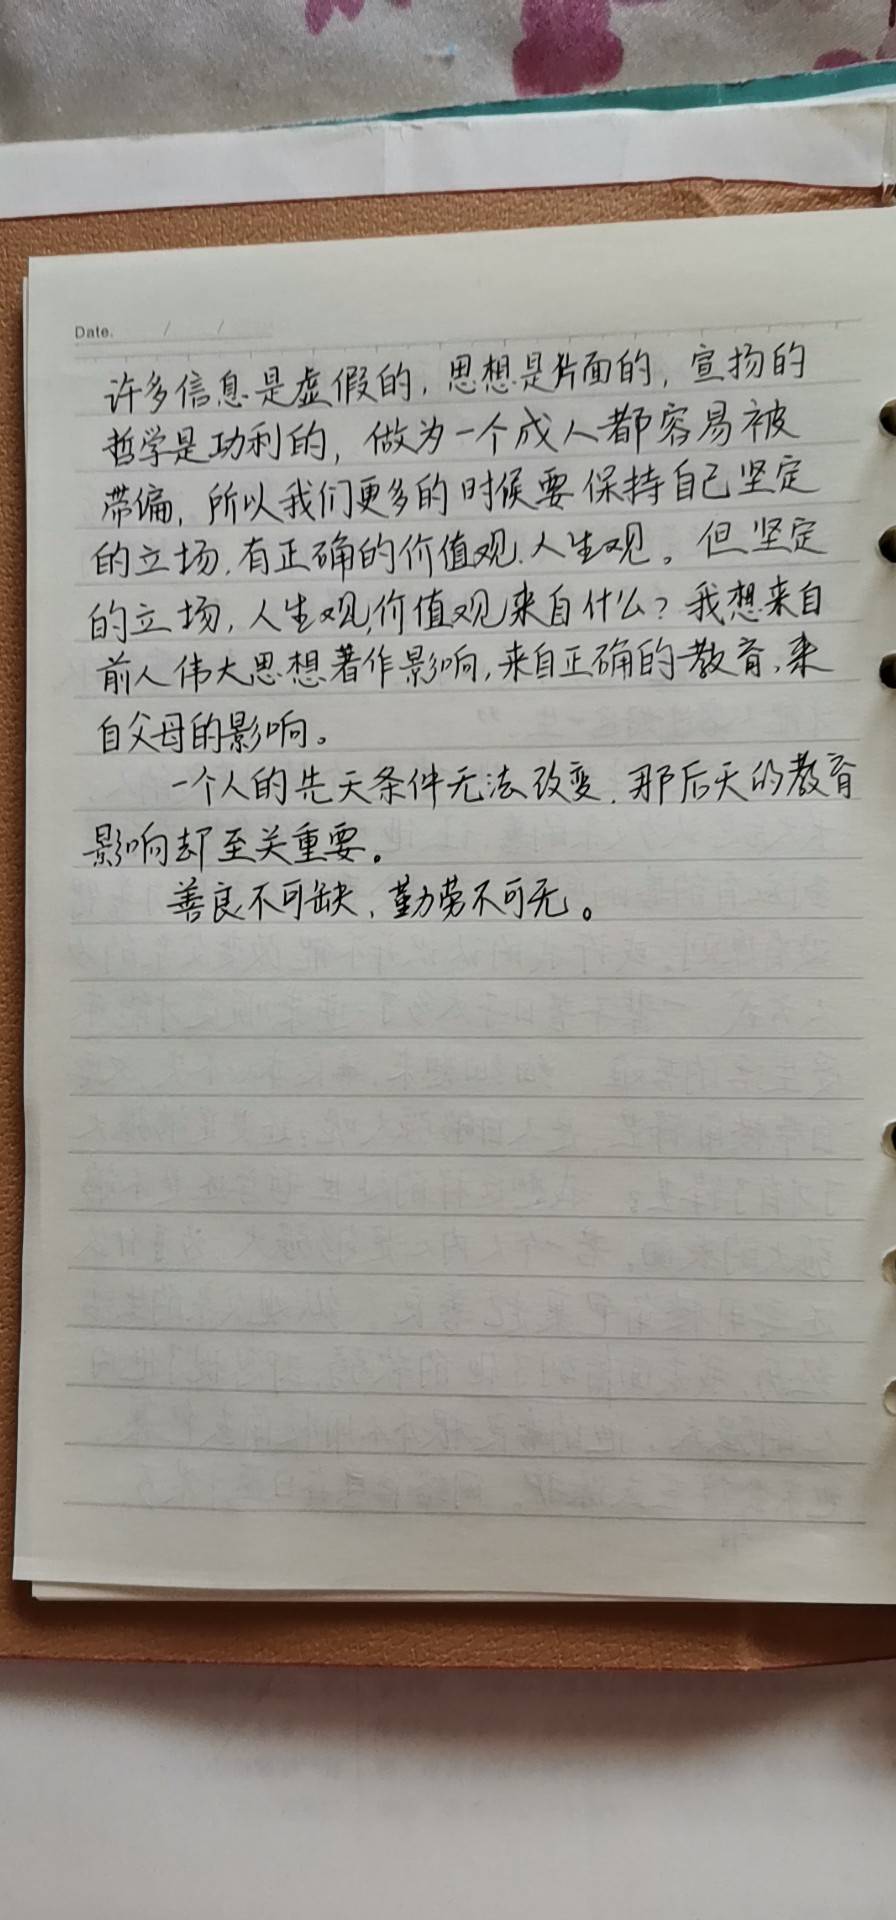 Date. / /
许多信息是虚假的，思想是片面的，宣扬的
哲学是功利的，做为一个成人都容易被
带偏，所以我们更多的时候要保持自己坚定
的立场，有正确的价值观、人生观。但坚定
的立场，人生观，价值观来自什么？我想来自
前人伟大思想著作影响，来自正确的教育，来
自父母的影响。
一个人的先天条件无法改变，那后天的教育
影响却至关重要。
善良不可缺，勤劳不可无。